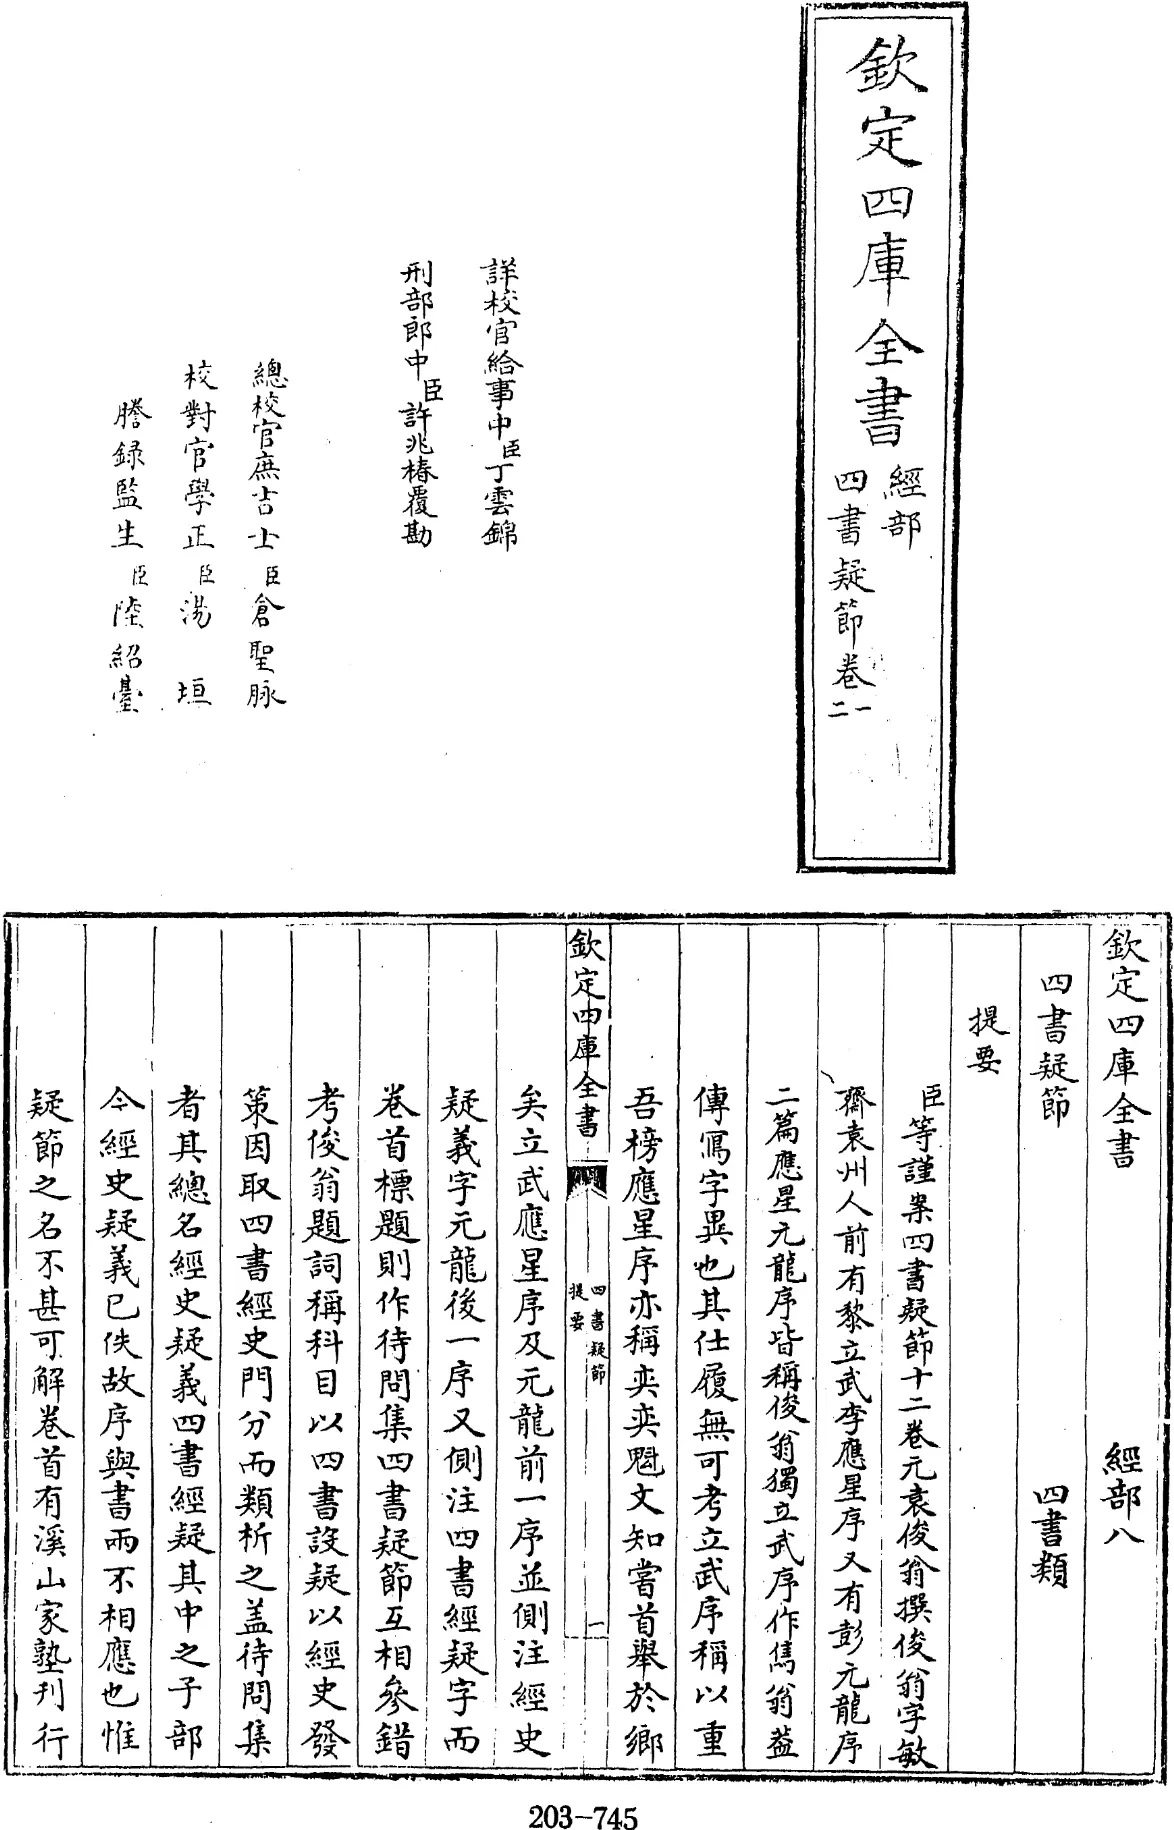 欽定四庫全書
經部
四書疑節卷一
二
詳校官給事中臣丁雲錦
刑部郎中臣許兆椿覆勘
總校官庶吉士臣倉聖脉
校對官學正臣湯垣
謄錄監生臣陸紹臺
欽定四庫全書 經部八
四書疑節 四書類
提要
臣等謹案四書疑節十二卷元袁俊翁撰俊翁字敏
齋袁州人前有黎立武李應星序又有彭元龍序
二篇應星元龍序皆稱俊翁獨立武序作雋翁葢
傳寫字異也其仕履無可考立武序稱以重
吾榜應星序亦稱奕奕魁文知嘗首舉於鄉
欽定四庫全書
四書疑節
提要
一
矣立武應星序及元龍前一序並側注經史
疑義字元龍後一序又側注四書經疑字而
卷首標題則作待問集四書疑節互相參錯
考俊翁題詞稱科目以四書設疑以經史發
策因取四書經史門分而類析之盖待問集
者其總名經史疑義四書經疑其中之子部
今經史疑義已佚故序與書兩不相應也惟
疑節之名不甚可解卷首有溪山家塾刊行
203-745